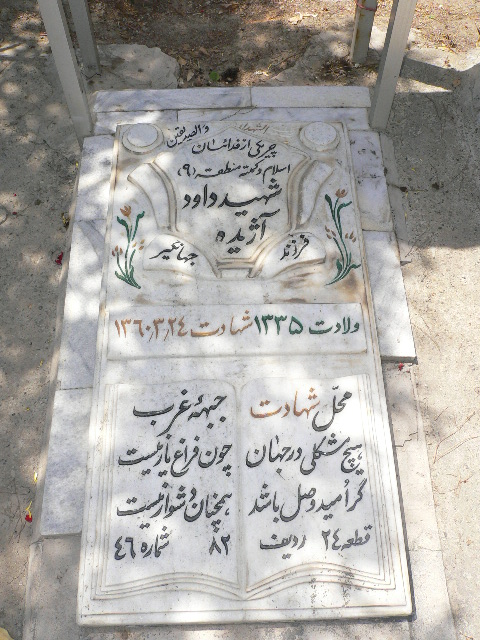 چریکی از فدائیان
اسلام و کمیته منطقه (۹)
شهید داود
آژیده
فرزند جهانگیر
ولادت ۱۳۳۵ شهادت ۱۳۶۰,۳,۲۴
محلّ شهادت جبههٔ غرب
هیچ مشکلی در جهان چون فراغ یار نیست
گر اُمید وصل باشد همچنان دشوار نیست
قطعه ۲۴ ردیف ۸۲ شماره ۴۶